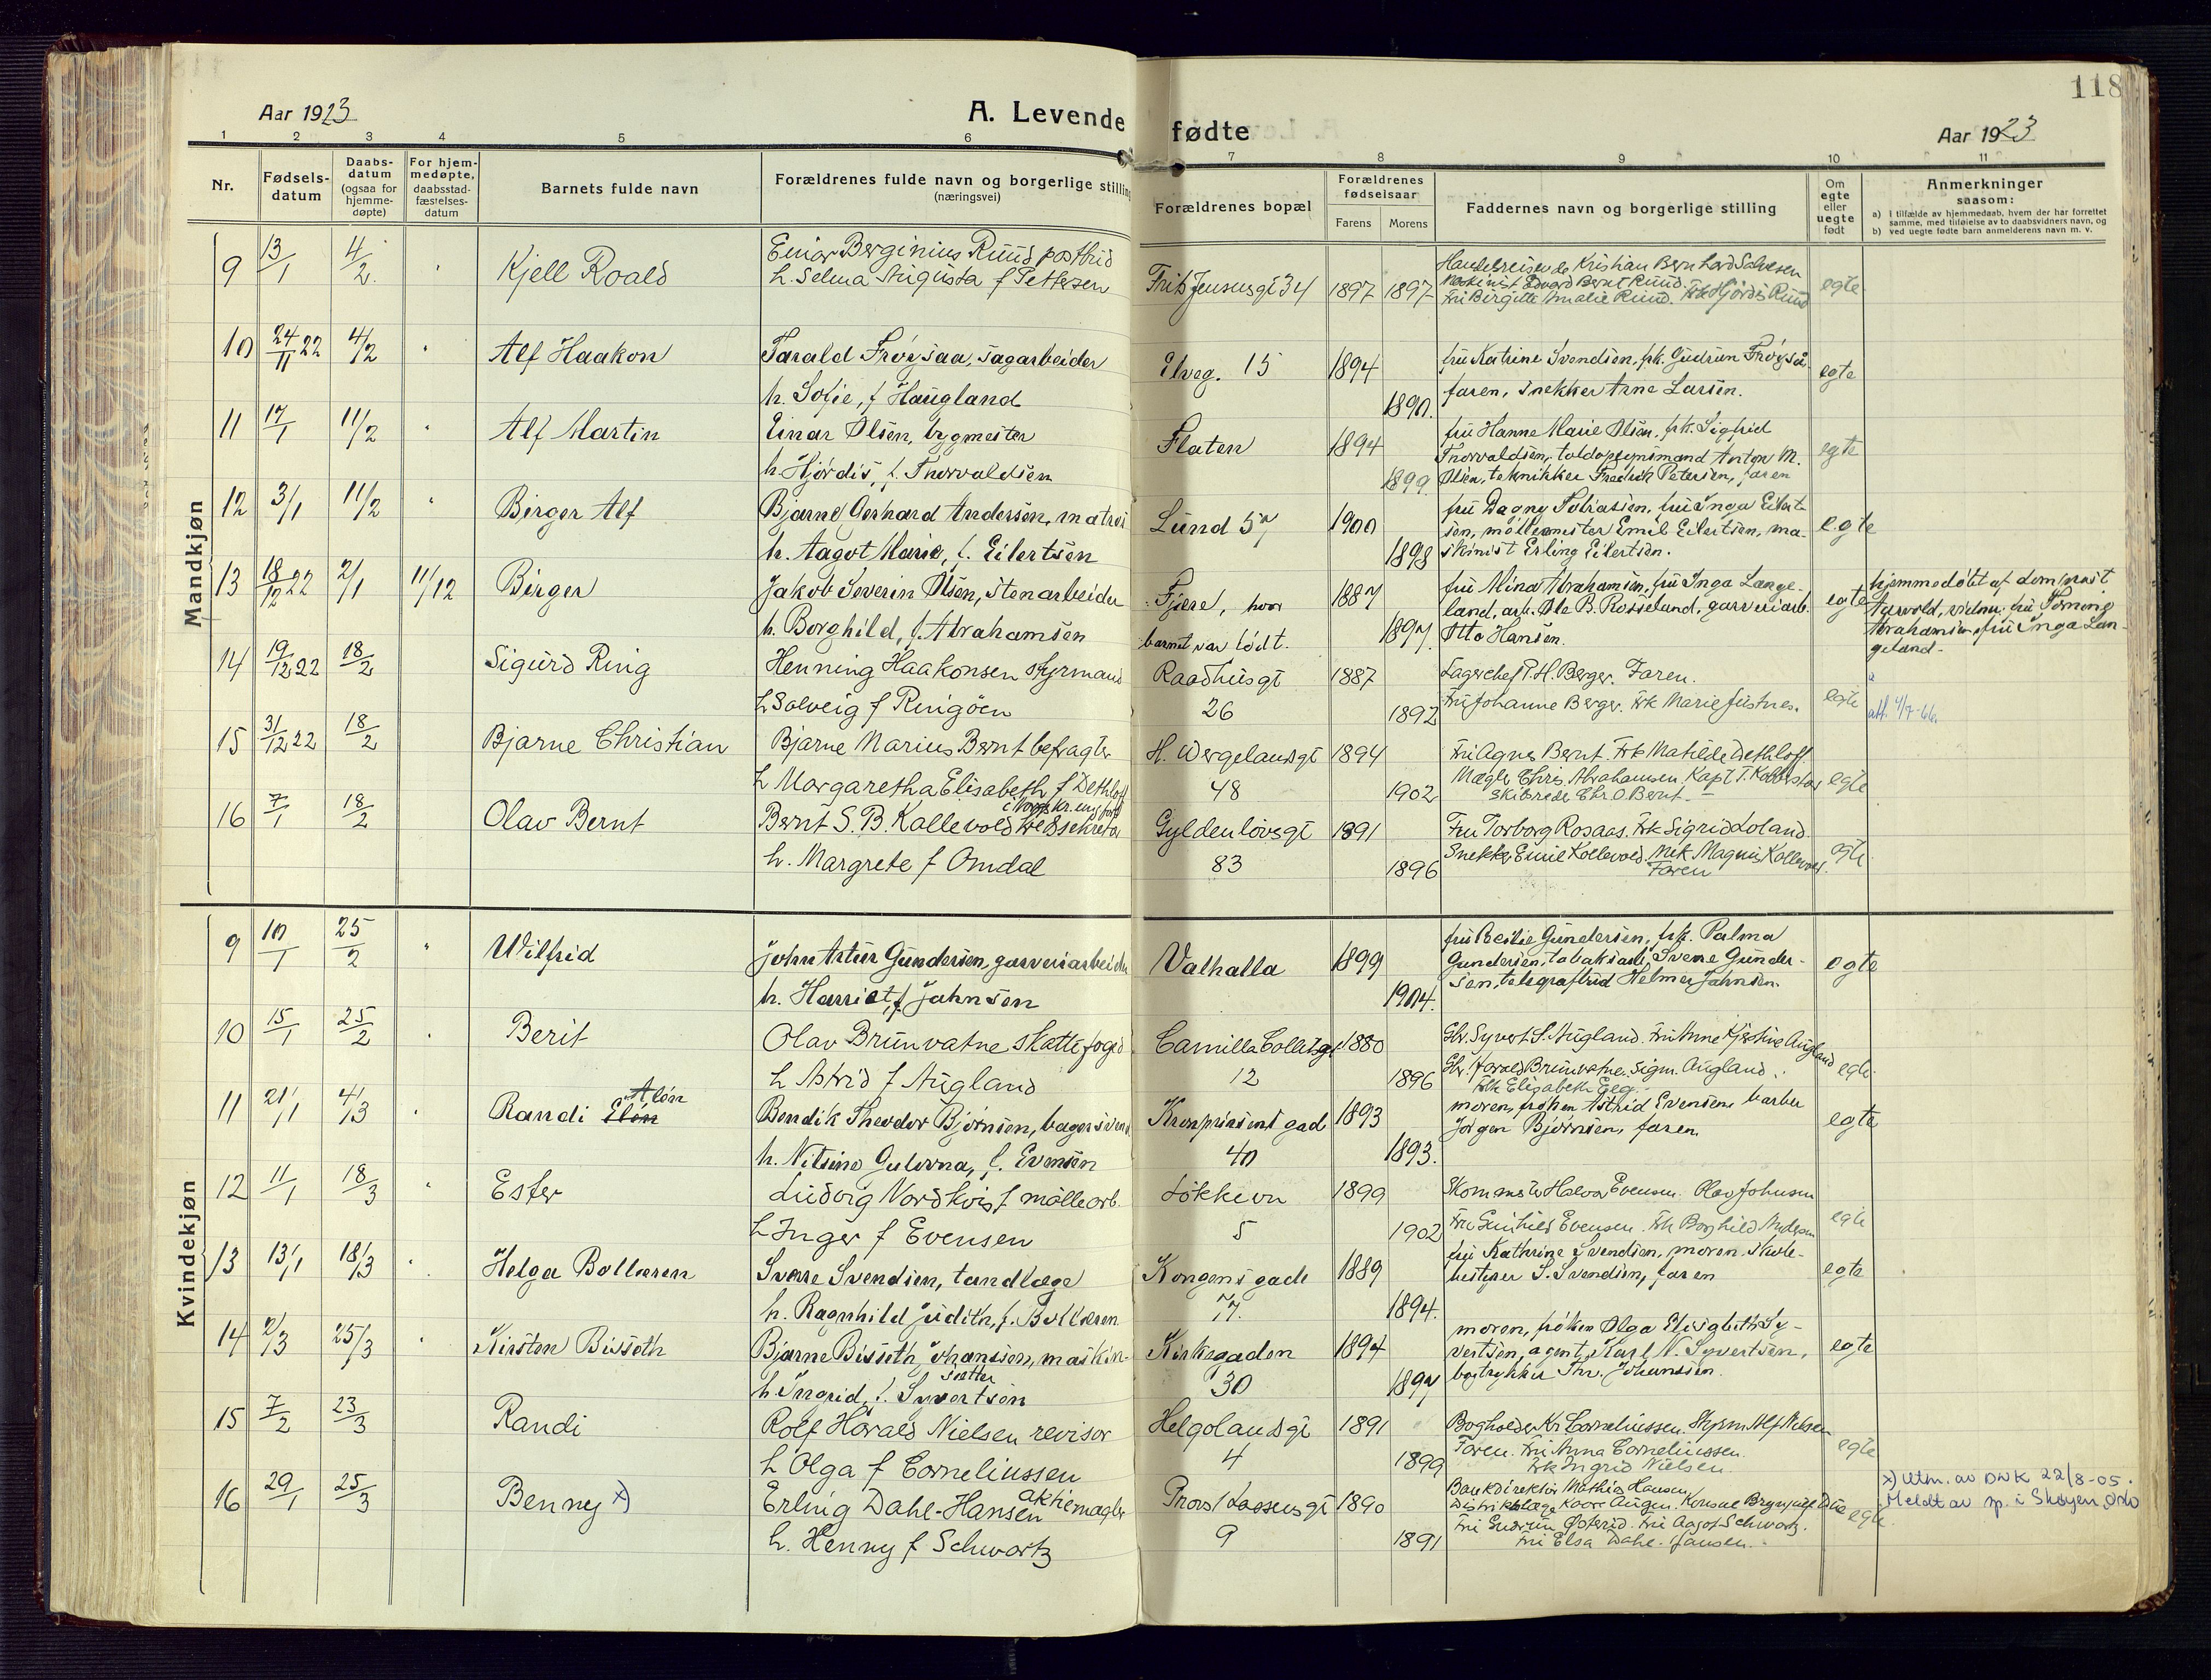 118
Aar 1923
A. Levende fødte
Aar 1923
1 2 3 4 5 6 7 8 9 10 11
Nr.
Fødsels-
datum
Daabs-
datum
(ogsaa for
hjemme-
døpte)
For hjem-
medøpte,
daabsstad-
fæstelses-
datum
Barnets fulde navn
Forældrenes fulde navn og borgerlige stilling
(næringsvei)
Forældrenes bopæl
Forældrenes
fødselsaar
Farens Morens
Faddernes navn og borgerlige stilling
Om
egte
eller
uegte
født
Anmerkninger
saasom:
a) I tilfælde av hjemmedaab, hvem der har forrettet
samme, med tilføielse av to daabsvidners navn, og
b) ved uegte fødte barn anmelderens navn m. v.
Mandkjøn
9 13/1 4/2 Kjell Roald
Einar Berginius Ruud postbud
h. Selma Augusta f Pettersen
Fritz Jensensgt 34 1897 1897
Handelsreisende Kristian Bernhard Salvesen
Maskinist Edvard Bernt Ruud.
Fru Birgitte Amalie Ruud. Frk Hjördis Ruud
egte
10 24/11 22 4/2 Alf Haakon
Tarald Frøysaa, sagarbeider
h. Sofie, f Haugland
Elveg. 15 1894 1890.
fru Katrine Svendsen, frk. Gudrun Frøyså
faren, snekker Arne Larsen.
egte
11 17/1 11/2 Alf Martin
Einar Olsen, bygmester
h. Hjørdis, f. Thorvaldsen
Flaten 1894 1899.
fru Hanne Marie Olsen, frk. Sigfrid
Thorvaldsen, toldopsynsmand Anton M.
Olsen, teknikker Fredrik Petersen, faren
egte
12 3/1 11/2 Birger Alf
Bjarne Gerhard Andersen, matros
h. Aagot Marie, f. Eilertsen
Lund 57 1900 1898
fru Dagny Tobiassen, fru Inga Eilert-
sen, møllemester Emil Eilertsen, ma-
skinist Erling Eilertsen.
egte
13 18/12 22 2/1 11/12 Birger
Jakob Severin Olsen, stenarbeider
h. Borghild, f. Abrahamsen
Fjære, hvor
barnet var født. 1887 1897.
fru Alina Abrahamsen, fru Inga Lange-
land, arb. Ole B. Rosseland, garveriarb.
Otto Hansen.
egte
hjemmedøbt af domprost
Aarvold, vidner, fru
Abrahamsen, fru Inga Lan-
geland.
14 19/12 22 18/2 Sigurd Ring
Henning Haakonsen styrmand
h Solveig f Ringöen
Raadhusgt
26 1887 1892
Lagerchef P. H. Berger. Faren.
Fru Johanne Berger. Frk Marie Justnes.
egte
att. 4/7-66.
15 31/12 22 18/2 Bjarne Christian
Bjarne Marius Bernt befragter
h Margaretha Elisabeth f Dethloff
H. Wergelandsgt
48 1894 1902
Fru Agnes Bernt. Frk Matilde Dethloff
Mægler Chris. Abrahamsen Kapt T.
Skibsreder Chr. O. Bernt.
egte
16 7/1 18/2 Olav Bernt
Bernt S. B. Kallevold
h. Margrete f Omdal
Gyldenløvsgt
83 1891 1896
Fru Torborg Rosaas. Frk Sigrid Loland.
Snekker Emil Kollevold. Mek Magnus Kallevold.
Faren
egte
Kvindekjøn
9 10/1 25/2 Wilfrid
John Artur Gundersen, garveriarbeider
h. Harriet, f Jahnsen
Valhalla 1899 1904.
fru Gundersen, frk. Palma
Gundersen, Sverre Gunder-
sen, telegrafbud Helmer Jahnsen.
egte
10 15/1 25/2 Berit
Olav Brunvatne skattefoged
h Astrid f Augland
Camilla Colletsgt
12 1880 1896
Gbr. Syvert S. Augland. Fru Anne Kjerstine Augland
Gbr. Harald Brunvatne. Sigm. Augland.
Frk Elisabeth Eeg.
egte.
11 21/1 4/3 Randi Elón Alón
Bendik Theodor Bjørnsen, bagersvend
h. Nitsine Gulovna, f. Evensen
Kronprinsens gad
40 1893 1893.
moren, frøken Astrid Evensen, barber
Jørgen Bjørnsen, faren
egte
12 11/1 18/3 Ester
Ludvig Nordkvist mölleorb.
h Inger f Evensen
Lökkevn
5 1899 1902
Skommster Halvor Evensen. Olav Johnsen
Fru Gunhild Evensen. Frk Borghild Andersen
egte
13 13/1 18/3 Helga Bollæren
Sverre Svendsen, tandlæge
h. Ragnhild Judith, f. Bollæren
Kongens gade
77. 1889 1894.
fru Kathrine Svendsen, moren. Skole-
bestyrer S. Svendsen, faren
egte
14 2/3 25/3 Kirsten Bisseth
Bjarne Bisseth Johanssen, maskin-
setter
h. Ingrid, f. Syvertsen
Kirkegaden
30 1894 1897
moren, frøken Olga Elisabeth Sy-
vertsen, agent, Karl N. Syvertsen,
bogtrykker Thr. Johanssen.
egte
15 7/2 23/3 Randi
Rolf Harald Nielsen revisor
h Olga f Corneliussen
Helgolandsgt
4 1891 1899
Bogholder Kr Corneliussen. Styrm Alf Nielsen
Faren. Fru Anna Corneliussen.
Frk Ingrid Nielsen.
egte
16 29/1 25/3 Benny x)
Erling Dahl-Hansen aktiemægler
h. Henny f Schwartz
Provst Lassensgt
9 1890 1891
Bankdirektör Mathias Hansen
Distriktslæge Kaare Augen. Konsul Brynjulf Due
Fru Gudrun Österud. Fru Aagot Schwartz.
Fru Elsa Dahl-Jansen.
egte.
x) Utm. av DNK 22/8-05.
Meldt av sp. i Skøyen, Oslo